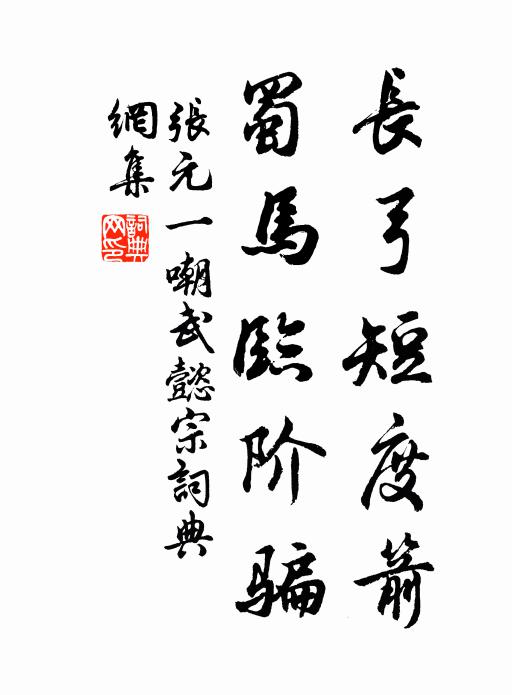 長弓短度箭
蜀馬臨阶骗
張元一嘲武懿宗詞典
網集
詞典
网印